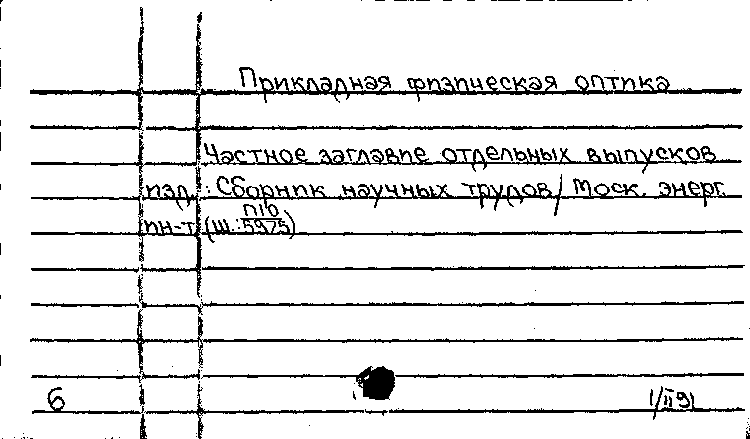 Прикладная физическая оптика
Частное заглавие отдельных выпусков
изд.: Сборник научных трудов / Моск. энерг.
ин-т (Ш.: П10/5975)
6
1/II 91